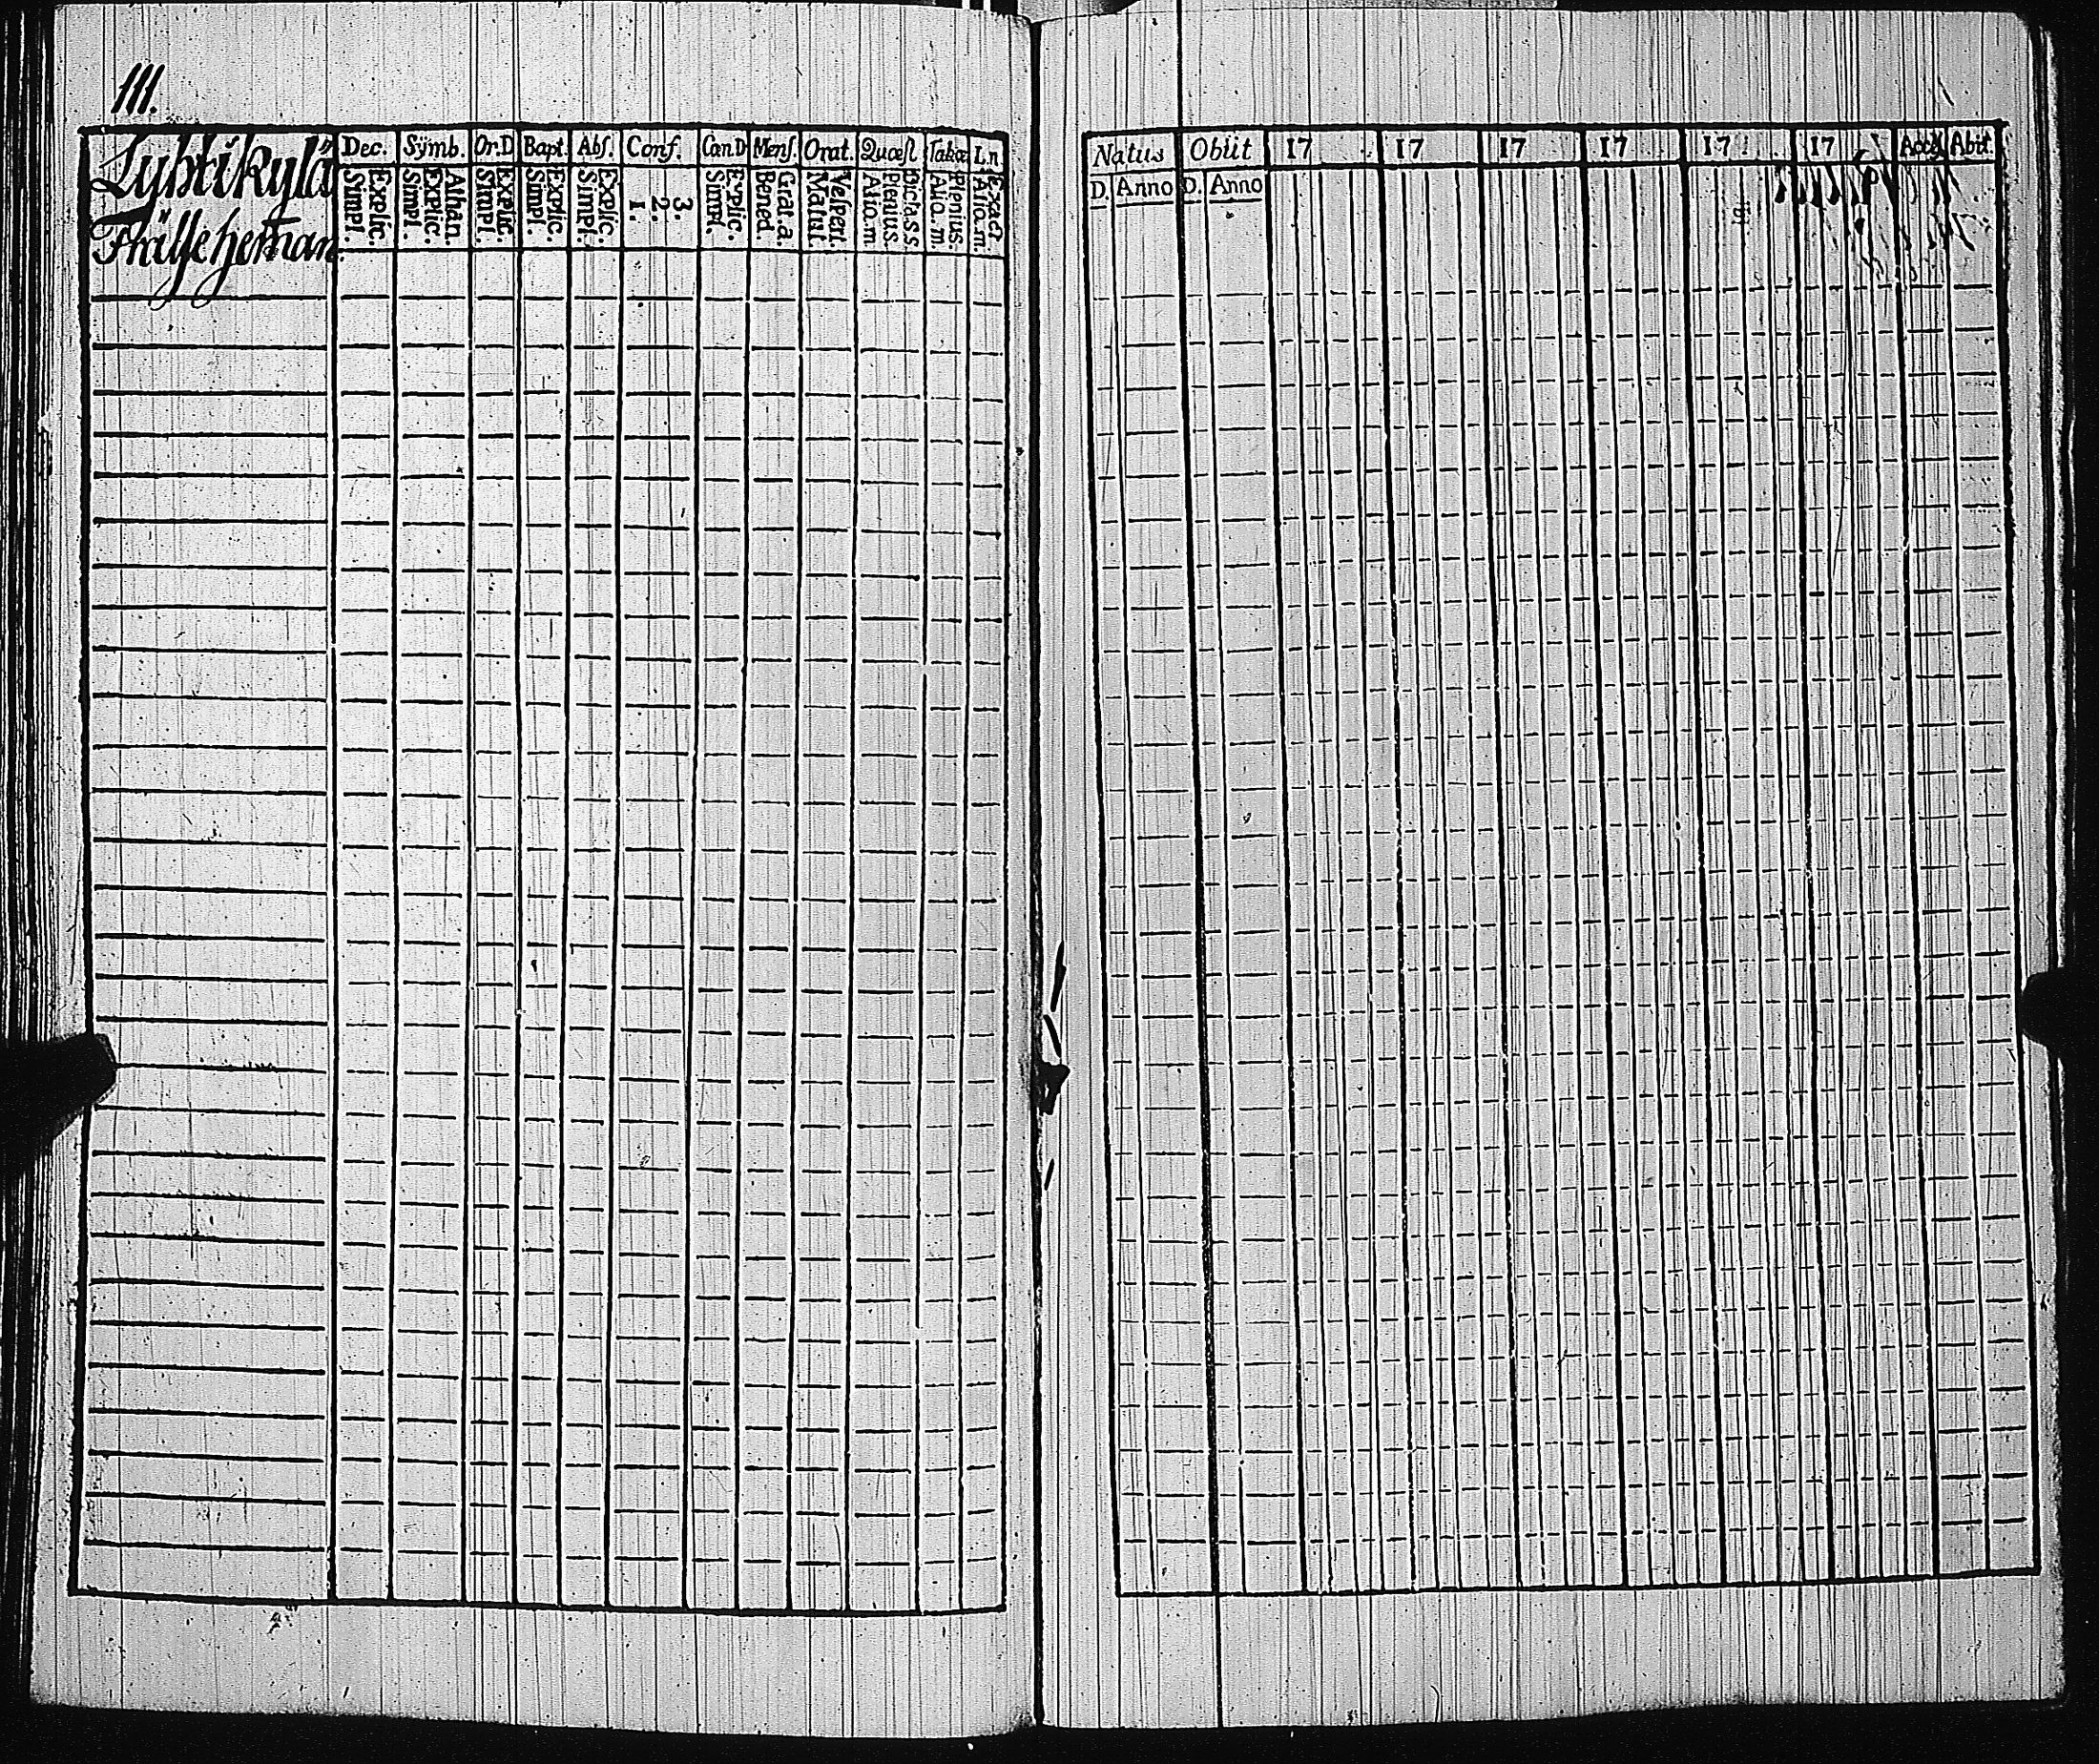 111.
Lyhtikylä
Frälsehemman
Dec. Sÿmb. Or.D Bapt. Abſ. Conf. Can.D Menſ. Orat. Quæſt Tabæ L.n
Explic. Simpl.
Athan. Explic. Simpl.
Explic. Simpl.
Explic. Simpl.
Explic. Simpl.
3. 2. 1.
Explic. Simpl.
Grat. a. Bened.
Veſpert. Matut.
Dicta s.s Plenius. Alio. m.
Plenius. Alio. m.
Exact. Alio. m.
Natus Obiit 17 17 17 17 17 17 Acceſ Abit.
D. Anno D. Anno